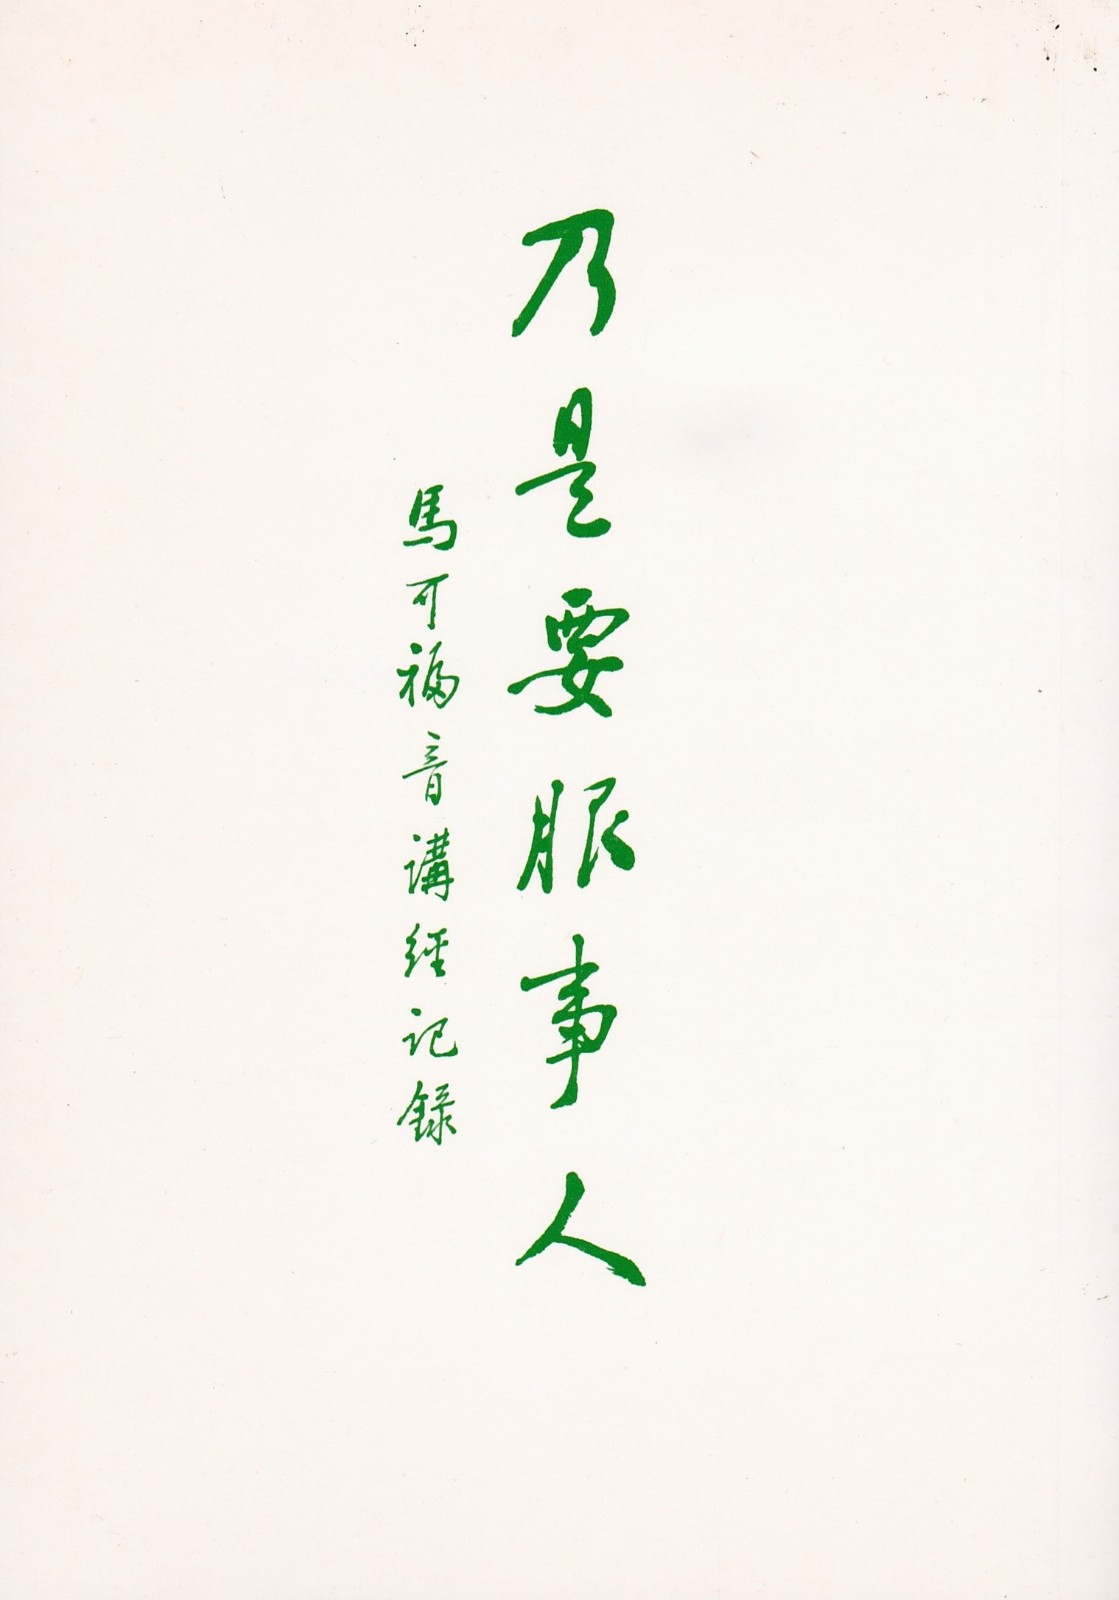 乃是要服事人
馬可福音講經記錄